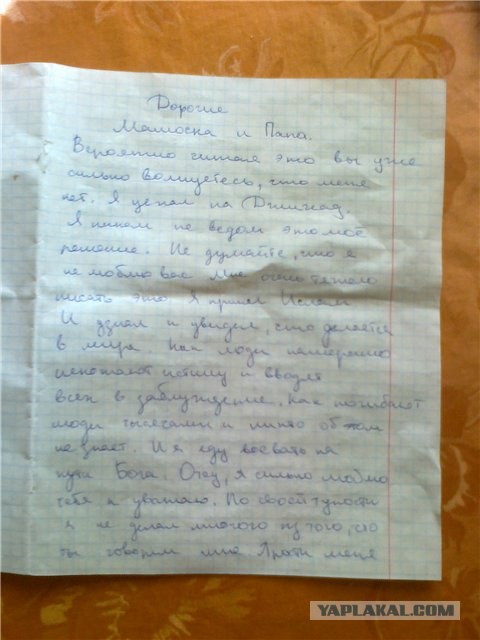 Дорогие
Мамочка и Папа.
Вероятно читая это вы уже
сильно волнуетесь, что меня
нет. Я уехал на Джихад.
Я никем не ведом это моё
решение. Не думайте, что я
не люблю вас Мне очень тяжело
писать это Я принял Ислам
И узнал и увидел, что делается
в мире. Как люди намеренно
искажают истину и вводят
всех в заблуждение. Как погибают
люди тысячами и никто об этом
не знает. И я еду воевать на
пути Бога. Отец, я сильно люблю
тебя и уважаю. По своей тупости
я не делал многого из того, что
ты говорил мне Прости меня
YAPLAKAL.COM